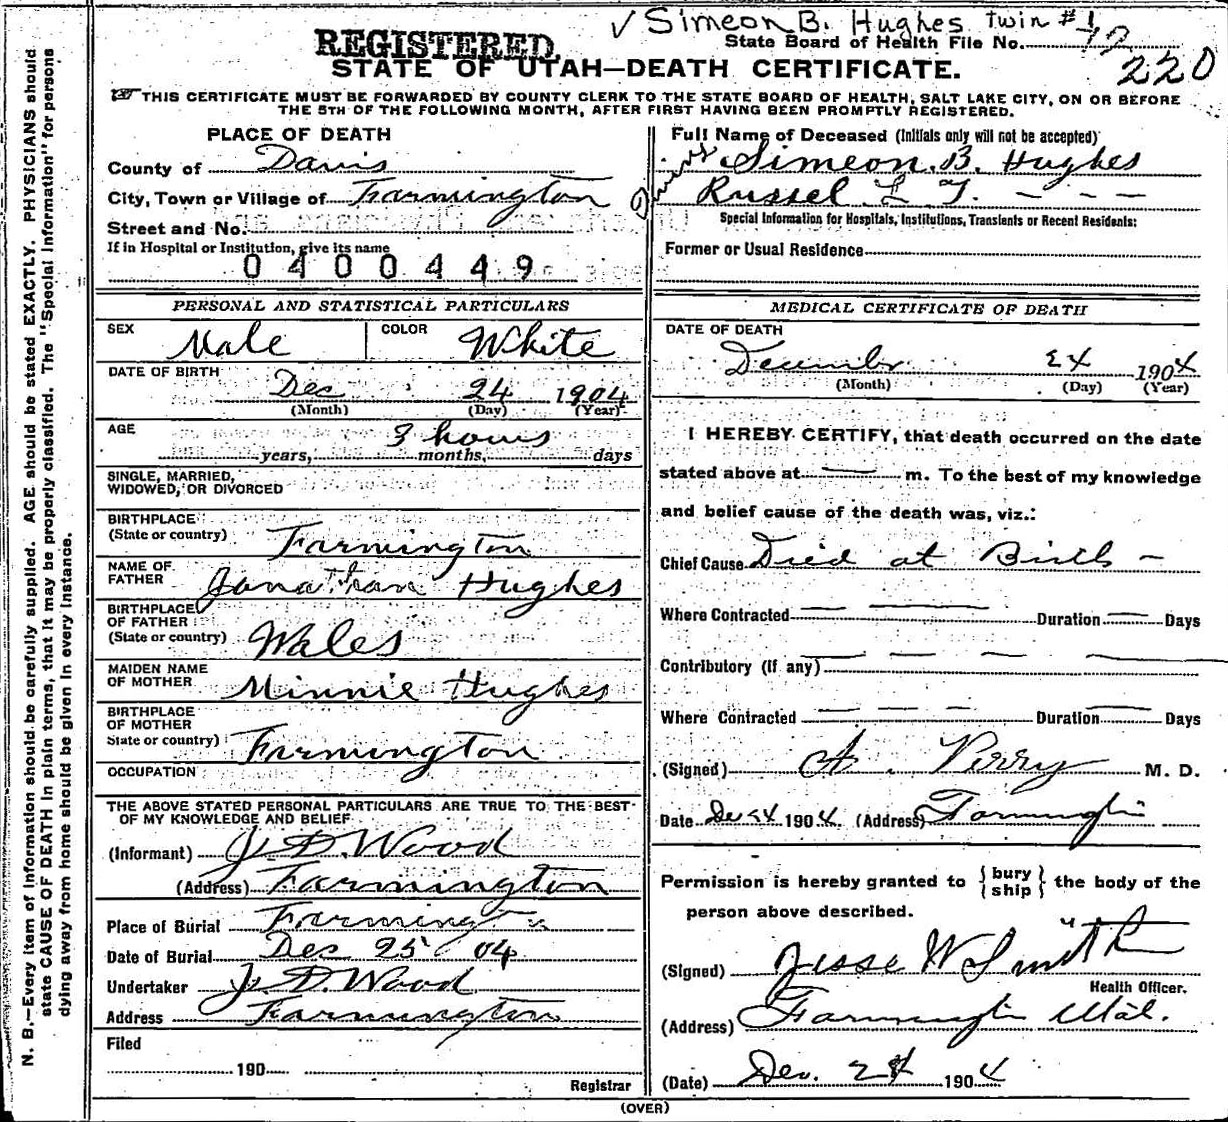 ✓ Simeon B. Hughes twin #1
REGISTERED.
State Board of Health File No. 17
220
STATE OF UTAH—DEATH CERTIFICATE.
☞ THIS CERTIFICATE MUST BE FORWARDED BY COUNTY CLERK TO THE STATE BOARD OF HEALTH, SALT LAKE CITY, ON OR BEFORE
THE 5TH OF THE FOLLOWING MONTH, AFTER FIRST HAVING BEEN PROMPTLY REGISTERED.
PLACE OF DEATH
County of Davis
City, Town or Village of Farmington
Street and No.
If in Hospital or Institution, give its name
0400449
Full Name of Deceased (Initials only will not be accepted)
Twins Simeon. B. Hughes
Russel L T. — — —
Special Information for Hospitals, Institutions, Transients or Recent Residents:
Former or Usual Residence
PERSONAL AND STATISTICAL PARTICULARS
SEX Male COLOR White
DATE OF BIRTH Dec 24 1904
(Month) (Day) (Year)
AGE 3 hours
years, months, days
SINGLE, MARRIED,
WIDOWED, OR DIVORCED
BIRTHPLACE
(State or country) Farmington
NAME OF
FATHER Jonathan Hughes
BIRTHPLACE
OF FATHER
(State or country) Wales
MAIDEN NAME
OF MOTHER Minnie Hughes
BIRTHPLACE
OF MOTHER
State or country) Farmington
OCCUPATION
THE ABOVE STATED PERSONAL PARTICULARS ARE TRUE TO THE BEST
OF MY KNOWLEDGE AND BELIEF
(Informant) J. D. Wood
(Address) Farmington
Place of Burial Farmington
Date of Burial Dec 25 04
Undertaker J. D. Wood
Address Farmington
Filed
190
Registrar
MEDICAL CERTIFICATE OF DEATH
DATE OF DEATH
December 24 1904
(Month) (Day) (Year)
I HEREBY CERTIFY, that death occurred on the date
stated above at — m. To the best of my knowledge
and belief cause of the death was, viz.:
Chief Cause Died at Birth —
Where Contracted — — Duration — Days
Contributory (if any) — — — —
Where Contracted — — — Duration — Days
(Signed) A. Perry M. D.
Date Dec 24 1904. (Address) Farmington
Permission is hereby granted to {bury
{ship} the body of the
person above described.
(Signed) Jesse W Smith
Health Officer.
(Address) Farmington Utah.
(Date) Dec. 24 1904
(OVER)
N. B.—Every item of information should be carefully supplied. AGE should be stated EXACTLY. PHYSICIANS should
state CAUSE OF DEATH in plain terms, that it may be properly classified. The "Special Information" for persons
dying away from home should be given in every instance.